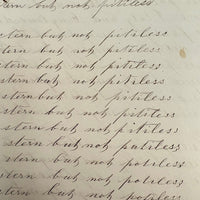 stern but not pitiless
stern but not pitiless
stern but not pitiless
stern but not pitiless
stern but, not pitiless
stern but not pitiless
stern but not pitiless
stern but, not pitiless
stern but not potiless
stern but not potiless
stern but not potiless